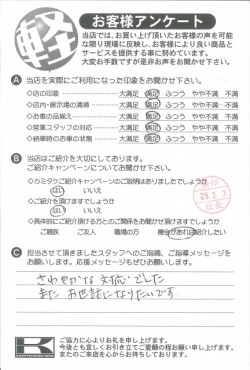 軽
お客様アンケート
当店では、お買い上げ頂いたお客様の声を可能
な限り現場に反映し、お客様により良い商品と
サービスを提供する事に努めています。
大変お手数ですが是非お声をお聞かせ下さい。
A 当店を実際にご利用になった印象をお聞かせ下さい。
◇店の印象 大満足 満足 ふつう やや不満 不満
◇店内・展示場の清掃 大満足 満足 ふつう やや不満 不満
◇お車の品揃え 大満足 満足 ふつう やや不満 不満
◇営業スタッフの対応 大満足 満足 ふつう やや不満 不満
◇納車時のお車の状態 大満足 満足 ふつう やや不満 不満
B 当店はご紹介を大切にしております。
ご紹介キャンペーンについてお聞かせ下さい。
◇カミタケご紹介キャンペーンのご説明はありましたでしょうか
はい いいえ
◇ご紹介を頂けますでしょうか
はい いいえ
◇具体的にご紹介頂ける方とのご関係をお聞かせ頂けますでしょうか
ご親族 ご友人 職場の方 機会があれば紹介したい
C 担当させて頂きましたスタッフへのご指摘、ご指導メッセージを
お願いします。応援メッセージもぜひお願いします。
さわやかな対応でした
また お世話になりたいです
K
ご協力に心よりお礼を申し上げます。
今後とも宜しくお引き立てご愛顧の程お願い申し上げます。
またのご来店を心からお待ちしております。